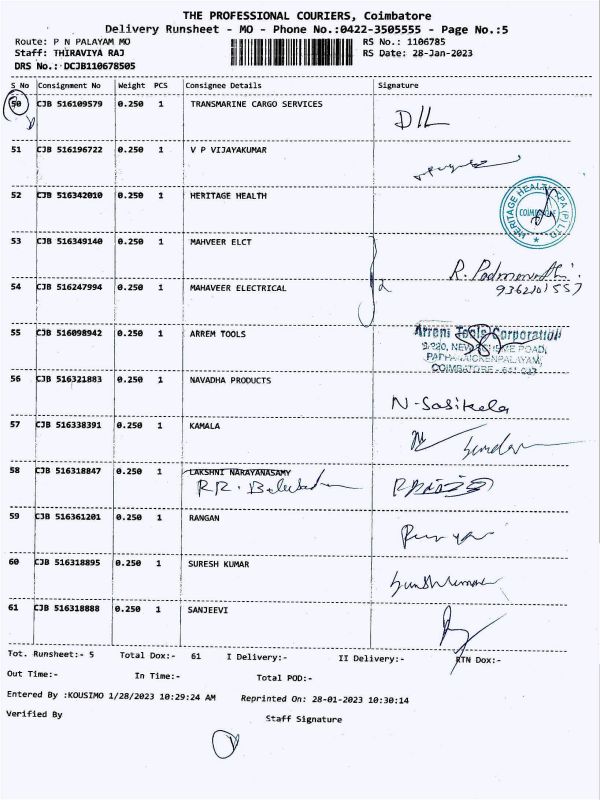 THE PROFESSIONAL COURIERS, Coimbatore
Delivery Runsheet - MO - Phone No.:0422-3505555 - Page No.:5
Route: P N PALAYAM MO RS No.: 1106785
Staff: THIRAVIYA RAJ RS Date: 28-Jan-2023
DRS No.: DCJB110678505
S No Consignment No Weight PCS Consignee Details Signature
50 CJB 516109579 0.250 1 TRANSMARINE CARGO SERVICES
DIL
51 CJB 516196722 0.250 1 V P VIJAYAKUMAR
52 CJB 516342010 0.250 1 HERITAGE HEALTH
HERITAGE HEALTH SPA (P) LTD
COIMBATORE
53 CJB 516349140 0.250 1 MAHVEER ELCT
R. Padmavathi.
54 CJB 516247994 0.250 1 MAHAVEER ELECTRICAL
2
9362101557
55 CJB 516098942 0.250 1 ARREM TOOLS
Arrem Tools Corporation
COIMBATORE
56 CJB 516321883 0.250 1 NAVADHA PRODUCTS
N-Sasikala
57 CJB 516338391 0.250 1 KAMALA
58 CJB 516318847 0.250 1 LAKSHNI NARAYANASAMY
59 CJB 516361201 0.250 1 RANGAN
60 CJB 516318895 0.250 1 SURESH KUMAR
61 CJB 516318888 0.250 1 SANJEEVI
Tot. Runsheet:- 5 Total Dox:- 61 I Delivery:- II Delivery:- RTN Dox:-
Out Time:- In Time:- Total POD:-
Entered By :KOUSIMO 1/28/2023 10:29:24 AM Reprinted On: 28-01-2023 10:30:14
Verified By Staff Signature